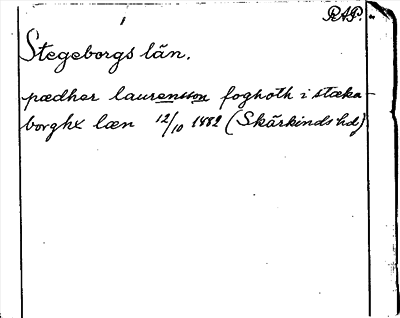 RAP.
Stegeborgs län.
pædher laurensson foghoth i stæka-
borghx læn 12/10 1482 (Skärkinds hd)